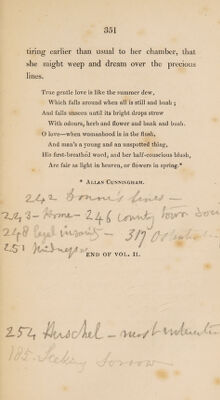 351
tiring earlier than usual to her chamber, that
she might weep and dream over the precious
lines.
True gentle love is like the summer dew,
Which falls around when all is still and hush;
And falls unseen until its bright drops strew
With odours, herb and flower and bank and bush.
O love—when womanhood is in the flush,
And man's a young and an unspotted thing,
His first-breathed word, and her half-conscious blush,
Are fair as light in heaven, or flowers in spring.*
* ALLAN CUNNINGHAM.
242 lines –
243 – Home – 246 county town
248 legal insanity – 317
251
END OF VOL. II.
254 Herschel – most
185. Seeking Sorrow